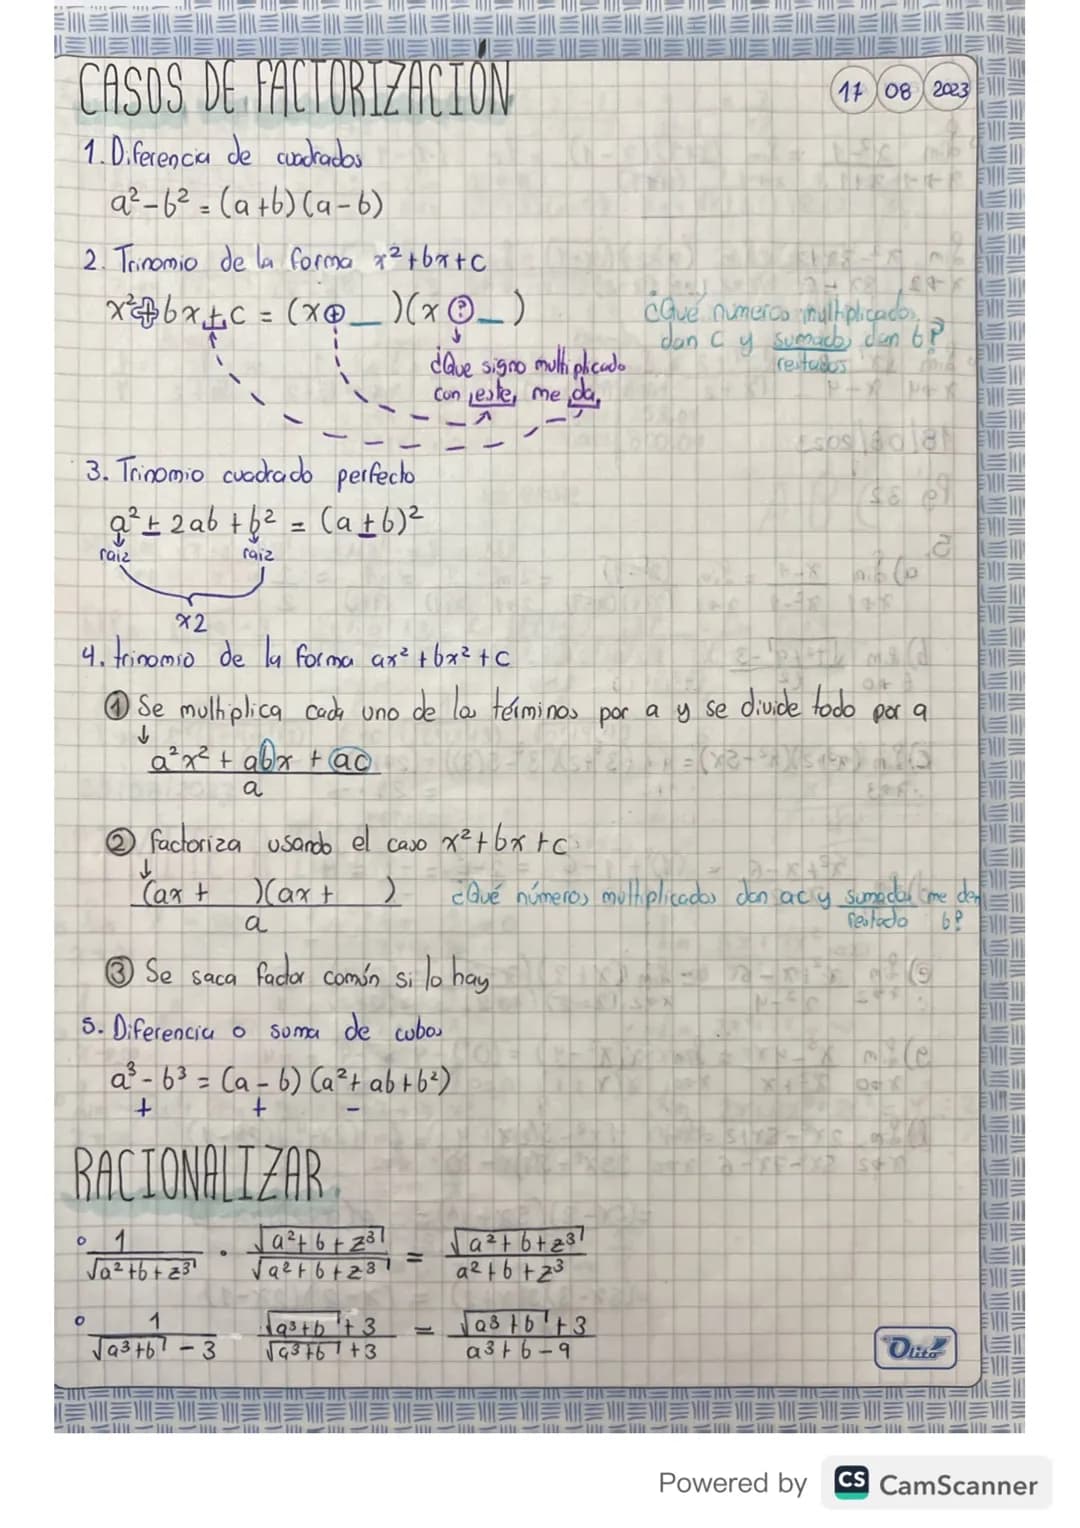 CASOS DE FACTORIZACIÓN
17 08 2023
1. Diferencia de cuadrados
a² - b² = (a+b)(a-b)
2. Trinomio de la forma x²+bx+c
x²+bx±c = (x⊕_)(x?_)
¿Qué numeros multiplicados
dan c y sumados dan b?
restados
¿Que signo multiplicado
con este, me da,
3. Trinomio cuadrado perfecto
a² ± 2ab + b² = (a±b)²
raiz raiz
x2
4. trinomio de la forma ax²+bx²+c
① Se multiplica cada uno de los términos por a y se divide todo por a
a²x² + abx + ac
a
② factoriza usando el caso x²+bx+c
(ax + )(ax + )
a
¿Qué números multiplicados dan ac y sumados me den
restado b?
③ Se saca factor común si lo hay
5. Diferencia o suma de cubos
a³ - b³ = (a - b)(a²+ab+b²)
+ + -
RACIONALIZAR
1 √a²+b+z³ √a²+b+z³
√a²+b+z³ · √a²+b+z³ = a²+b+z³
1 √a³+b + 3 √a³+b + 3
√a³+b - 3 √a³+b + 3 = a³+b-9
Olito
Powered by CS CamScanner